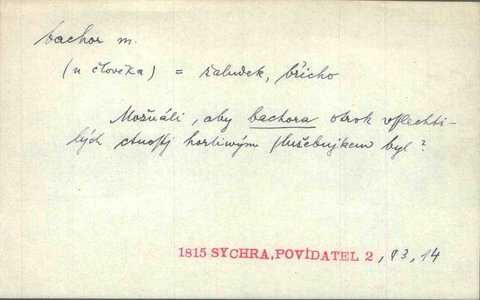 bachor m.
(u člověka) = žaludek, břicho
Možnáli, aby bachora otrok vſſlechti-
lých ctnoſtj horliwým ſlužebnjkem byl?
1815 SYCHRA, POVÍDATEL 2, 83, 14